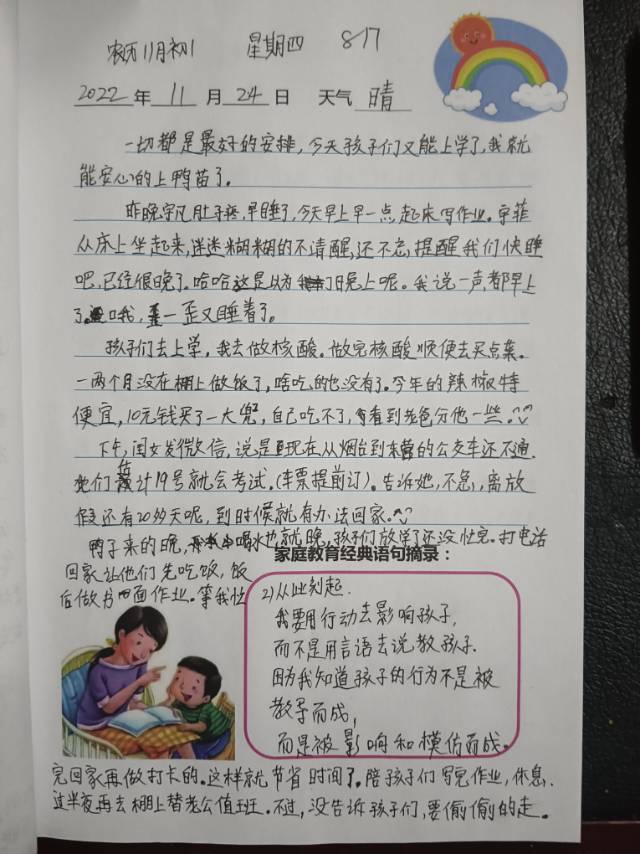 农历11月初1 星期四 817
2022年 11月 24日 天气 晴
一切都是最好的安排,今天孩子们又能上学了,我就
能安心的上鸭苗了。
昨晚宇凡肚子疼,早睡了,今天早上早一点起床写作业。宇菲
从床上坐起来,迷迷糊糊的不清醒,还不忘提醒我们快睡
吧,已经很晚了。哈哈这是以为我们晚上呢。我说一声,都早上
了。哦,一歪又睡着了。
孩子们去上学,我去做核酸。做完核酸顺便去买点菜。
一两个月没在棚上做饭了,啥吃的也没有了。今年的辣椒特
便宜,10元钱买了一大兜,自己吃不了,看到老色分他一些。^^
下午,闺女发微信,说是现在从烟台到的公交车还不通.
她们估计19号就会考试。(车票提前订)。告诉她,不急,离放
假还有20多天呢,到时候就有办法回家。^^
鸭子来的晚,喝水也就晚,孩子们放学了还没忙完。打电话
回家让他们先吃饭,饭
后做书面作业。等我忙
家庭教育经典语句摘录:
2)从此刻起.
我要用行动去影响孩子,
而不是用言语去说教孩子.
因为我知道孩子的行为不是被
教导而成,
而是被影响和模仿而成。
完回家再做打卡的。这样就节省时间了。陪孩子们写完作业,休息.
过半夜再去棚上替老公值班。不过,没告诉孩子们,要偷偷的走。